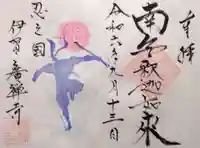 奉拝
南無釈迦如来
令和六年九月十三日
忍之国
伊賀 菩禅寺